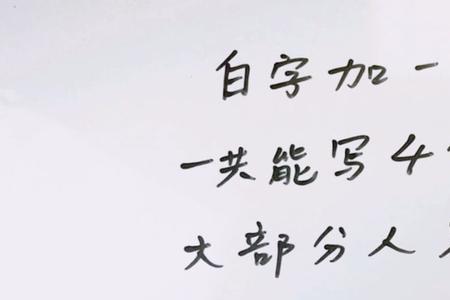 白字加一
一共能写4
大部分人